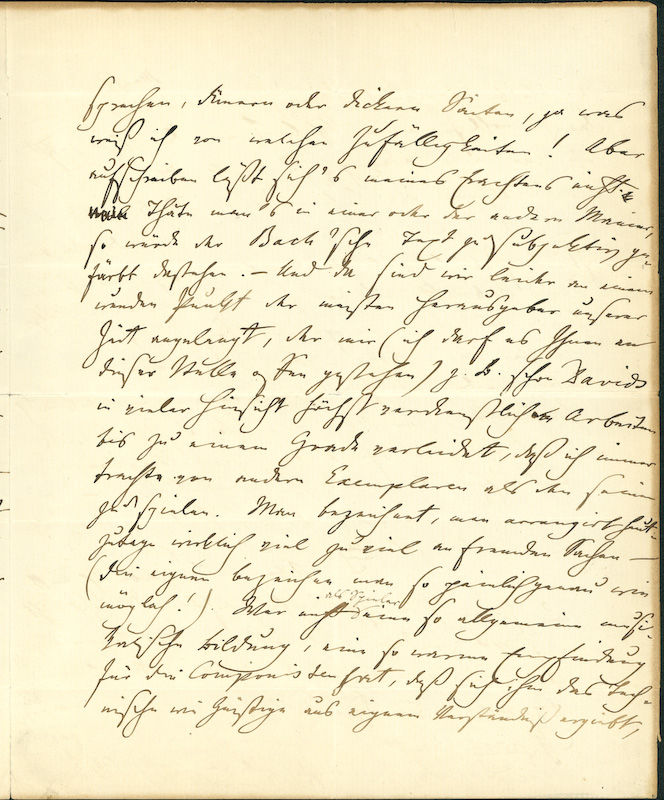 sprachen, dünnern oder dickern Saiten, ja was
weiß ich von welchen Zufälligkeiten! Aber
aufschreiben läßt sich's meines Erachtens nicht.
Thäte man's in einer oder der andern Manier,
so würde der Bach'sche Text zu subjektiv ge-
färbt dastehen. – Und da sind wir leider an einem
wunden Punkt der meisten Herausgeber unserer
Zeit angelangt, der mir (ich darf es Ihnen an
dieser Stelle offen gestehen) z. B. schon Davids
in vieler Hinsicht höchst verdienstliche Arbeiten
bis zu einem Grade verleidet, daß ich immer
trachte von andern Exemplaren als den seinen
zu spielen. Man bezeichnet, man arrangirt heut-
zutage wirklich viel zu viel an fremden Sachen –
(die eignen bezeichne man so peinlichgenau wie
möglich!). Wer nicht als Spieler eine so allgemeine musi-
kalische Bildung, eine so warme Empfindung
für die Componisten hat, daß sich ihm das Tech-
nische wie Geistige aus eignem Verständniß ergiebt,